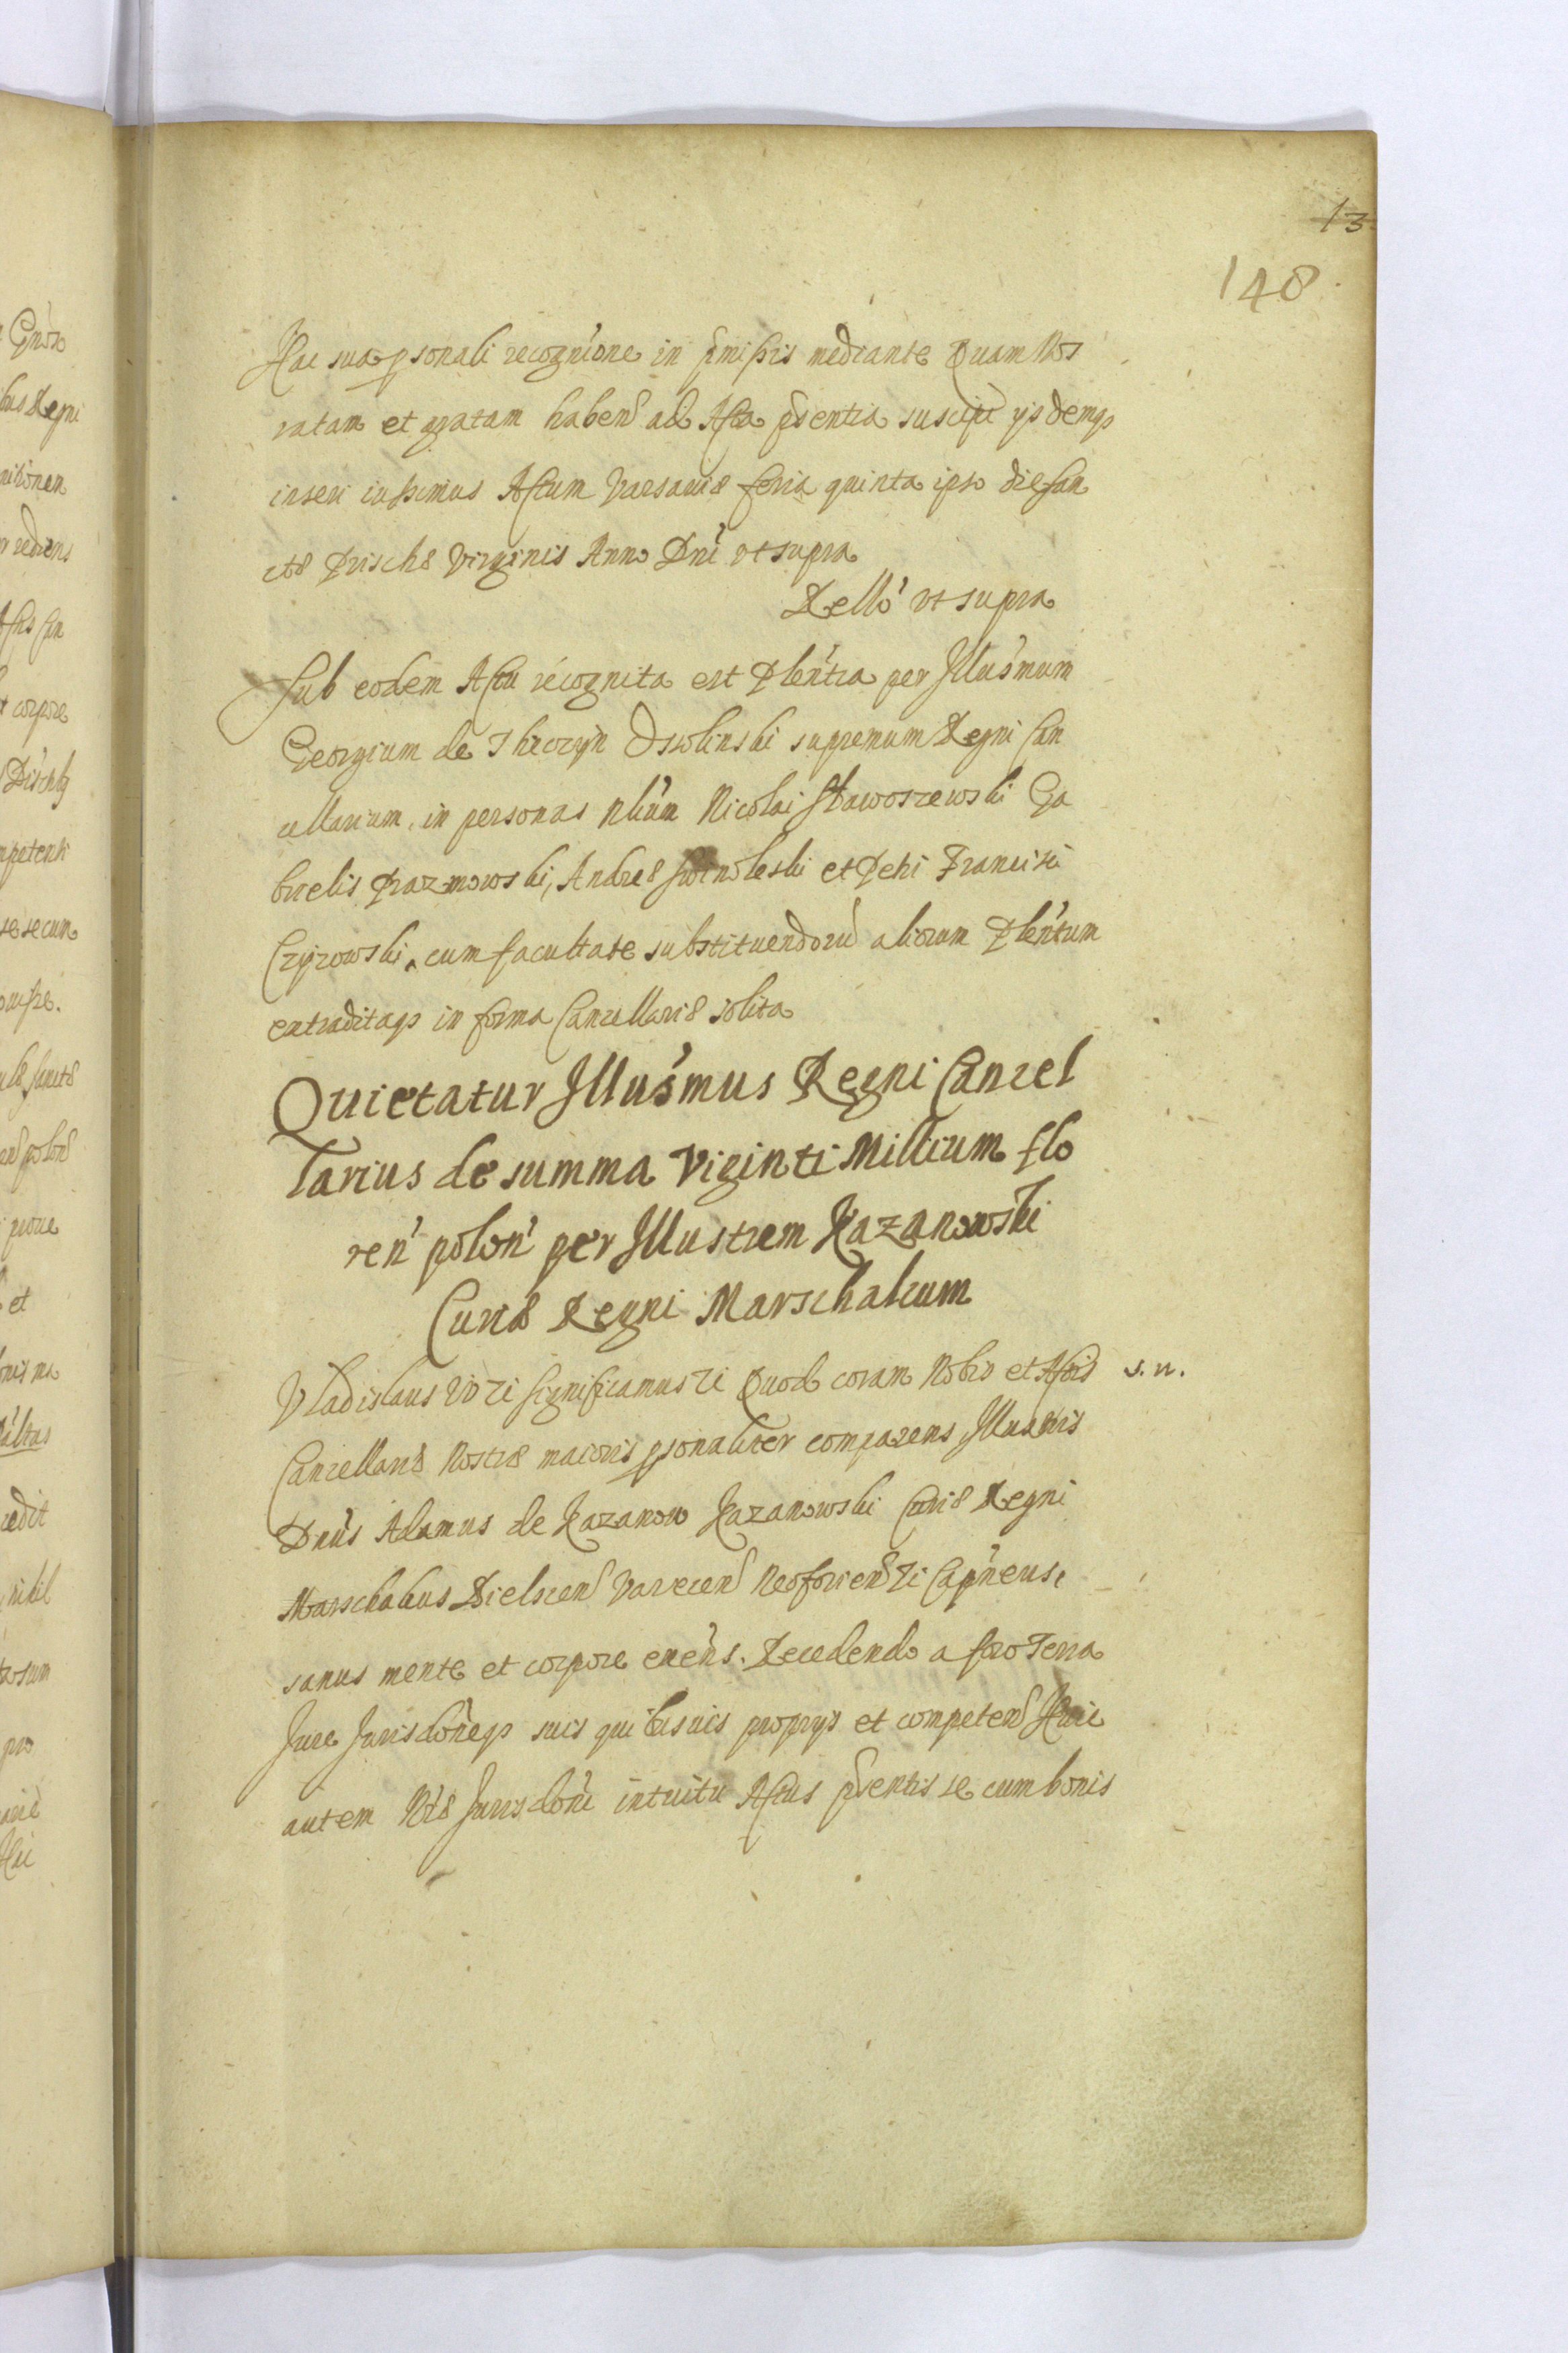 13
148
Hac sua psonali recognione in pmissis mediante Quam Nos
ratam et gratam haben ad Acta psentia suscipi ysdemq
inseri iussimus Actum Varsaviæ feria quinta ipso die San
ctæ Priscæ Virginis Anno Dni ut supra
Rello ut supra
Sub eodem Actu recognita est Plentia per Illusmum
Georgium de Theczyn Ossolinski supremum Regni Can
cellarium, in personas Nlium Nicolai Stawoszewski Ga
brielis Prazmowski, Andreæ Swinoleski et Petri Francisci
Czyzowski cum facultate substituendoru aliorum Plentum
extraditaq in forma Cancellariæ solita
Quietatur Illusmus Regni Cancel
larius de summa Viginti Millium flo
ren polon per Illustrem Kazanowski
Curiæ Regni Marschalcum
Vladislaus VD zi significamus zi Quod coram Nobis et Actis s. n.
Cancellariæ Nostræ maioris psonaliter comparens Illustris
Dnus Adamus de Kazanow Kazanowski Curiæ Regni
Marschalcus Bielscen Varecen Neoforien zi Capneus,
sanus mente et corpore exens. Recedendo a foro Terra
Jure Jurisdoneq suis quibusuis proprys et competen Huic
autem Nræ Jurisdoni intuitu Actus psentis se cum bonis